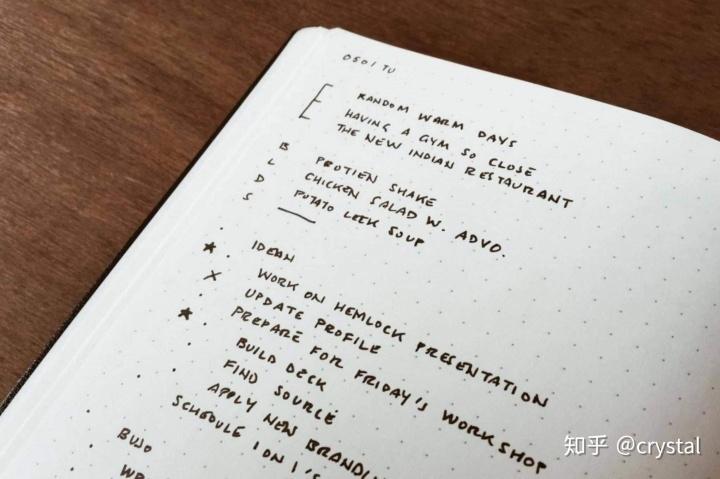 0501 TU
RANDOM WARM DAYS
HAVING A GYM SO CLOSE
THE NEW INDIAN RESTAURANT
B PROTIEN SHAKE
L CHICKEN SALAD W. ADVO.
D POTATO LEEK SOUP
S
IDEAN
WORK ON HEMLOCK PRESENTATION
X UPDATE PROFILE
PREPARE FOR FRIDAY'S WORKSHOP
BUILD DECK
FIND SOURCE
APPLY NEW
SCHEDULE 1 ON 1'S
BUJO
知乎 @crystal